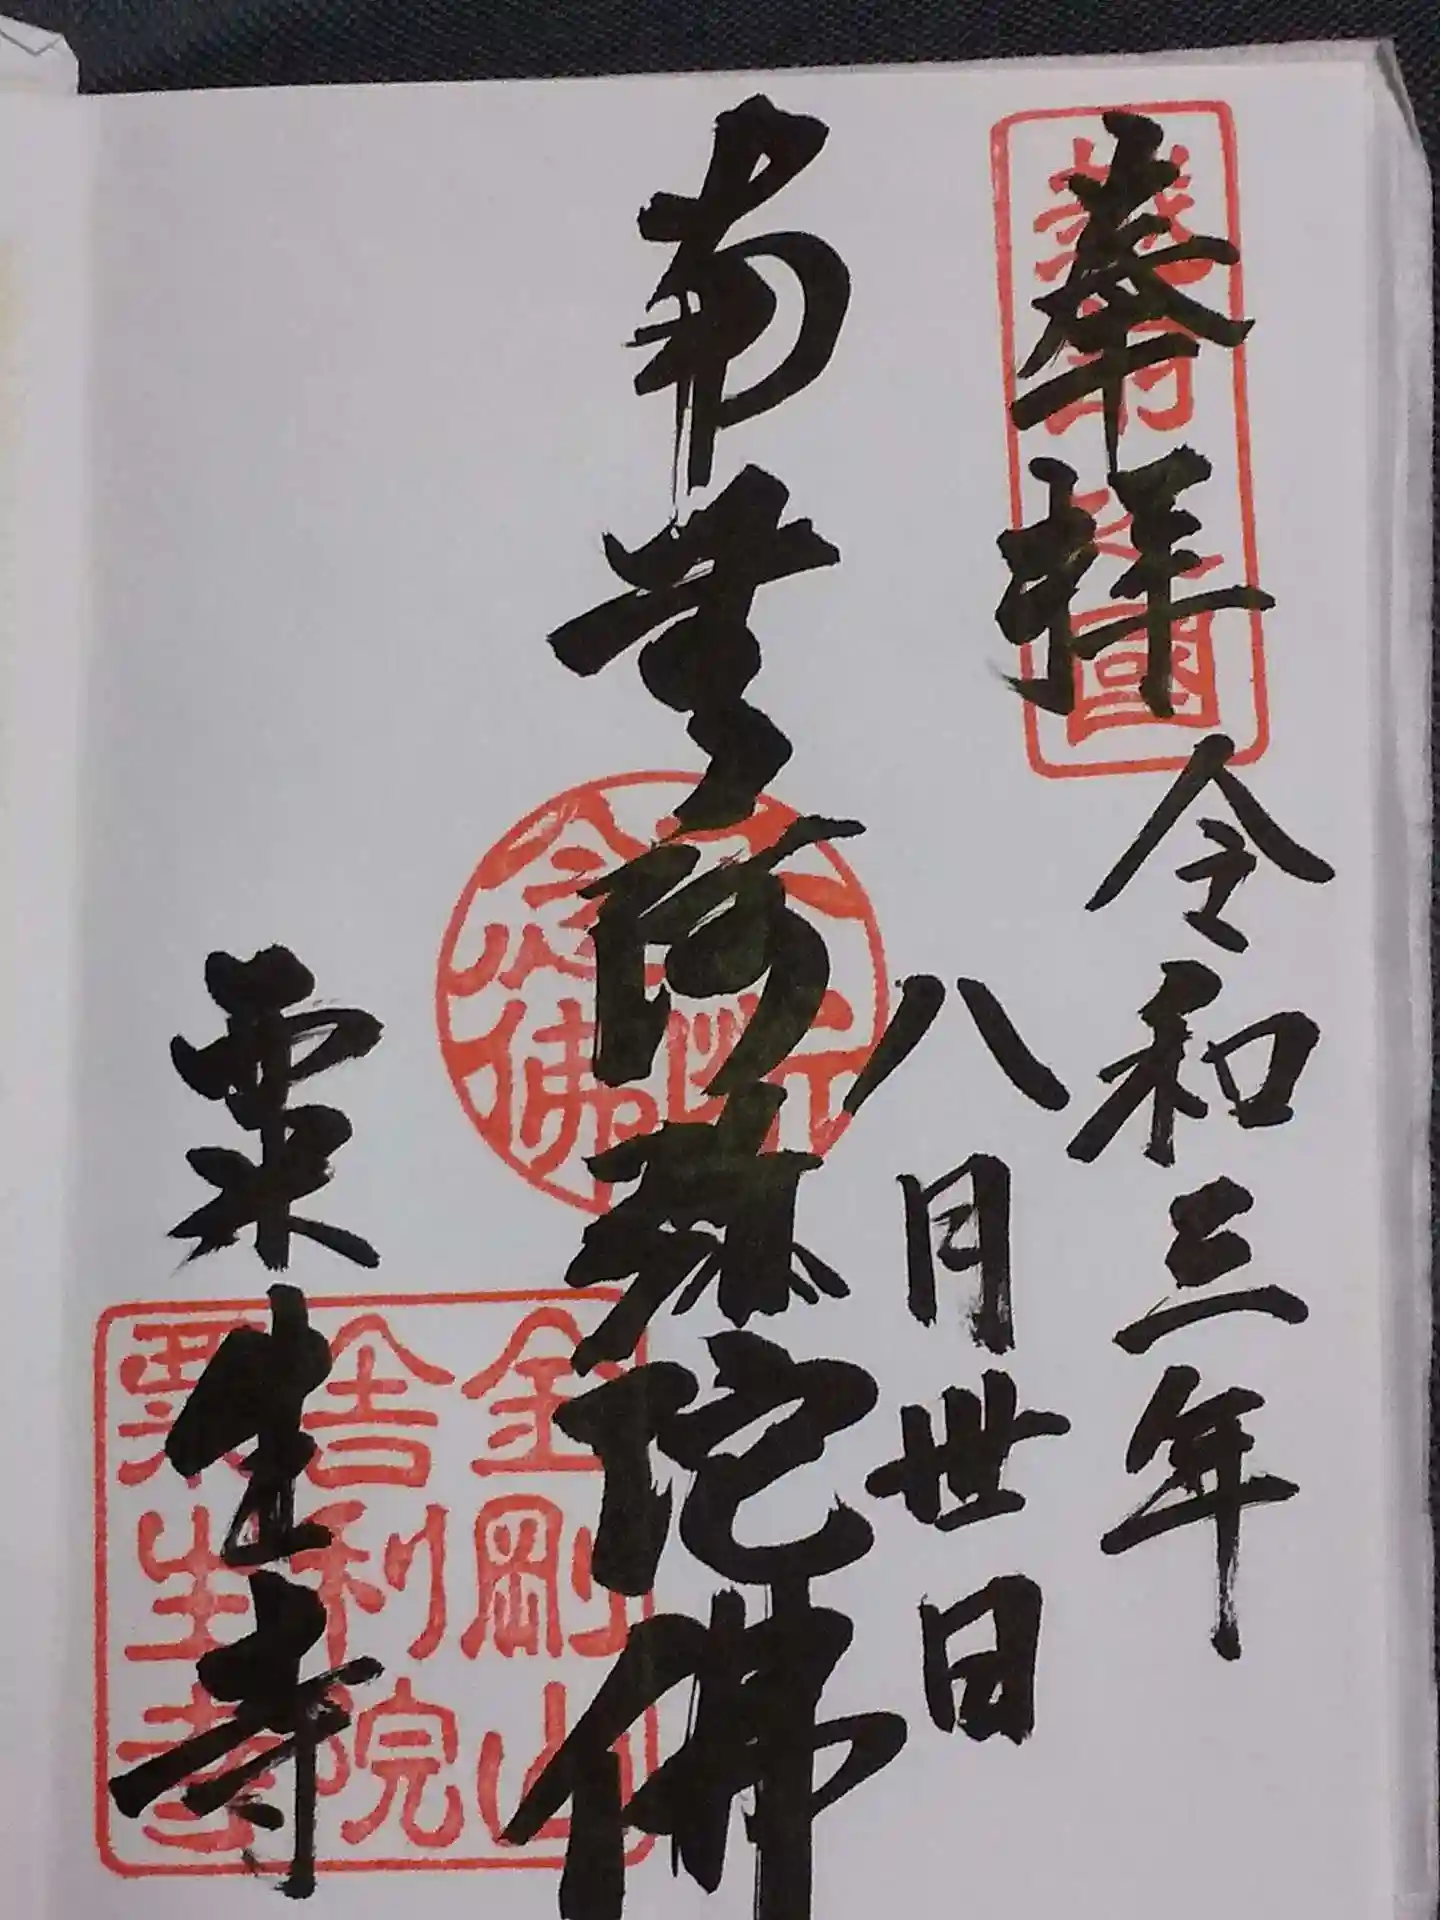 奉拝
令和三年
八月丗日
南無阿弥陀佛
粟生寺
念佛
金剛山
舎利院
粟生寺